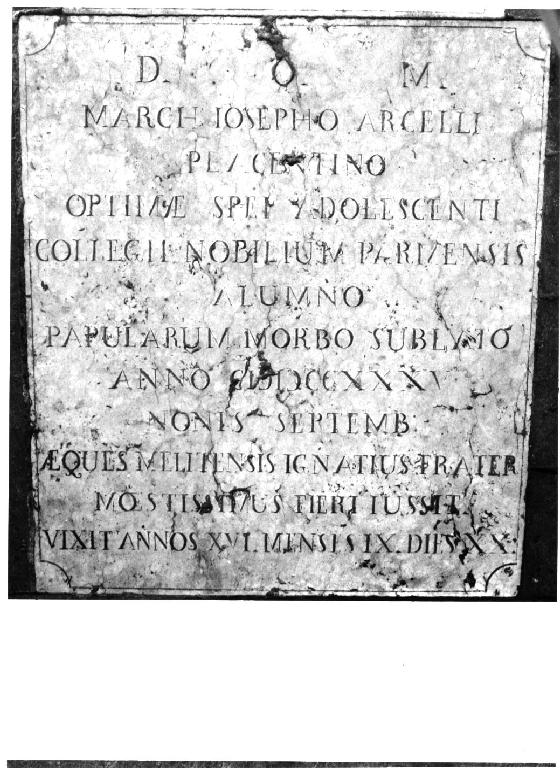 D. O. M.
MARCH. IOSEPHO ARCELLI
PLACENTINO
OPTIMÆ SPEI ADOLESCENTI
COLLEGII NOBILIUM PARMENSIS
ALUMNO
PAPULARUM MORBO SUBLATO
ANNO
NONIS SEPTEMB
ÆQUES MELITENSIS IGNATIUS FRATER
MŒSTISSIMUS FIERI IUSSIT
VIXIT ANNOS XVI. MENSIS IX. DIES XX.